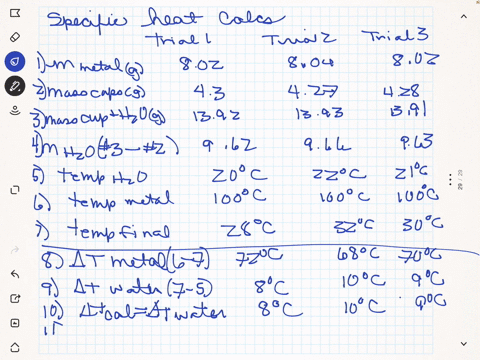 Specific heat calcs
Trial 1 Trial 2 Trial 3
1) m metal(g) 8.02 8.04 8.02
2) mass caps(g) 4.3 4.27 4.28
3) mass cup + H2O(g) 13.92 13.93 13.91
4) m H2O(#3-#2) 9.62 9.66 9.63
5) temp H2O 20°C 22°C 21°C
6) temp metal 100°C 100°C 100°C
7) temp final 28°C 32°C 30°C
8) ΔT metal(6-7) 72°C 68°C 70°C
9) Δt water (7-5) 8°C 10°C 9°C
10) Δt cal = Δt water 8°C 10°C 9°C
29 / 29